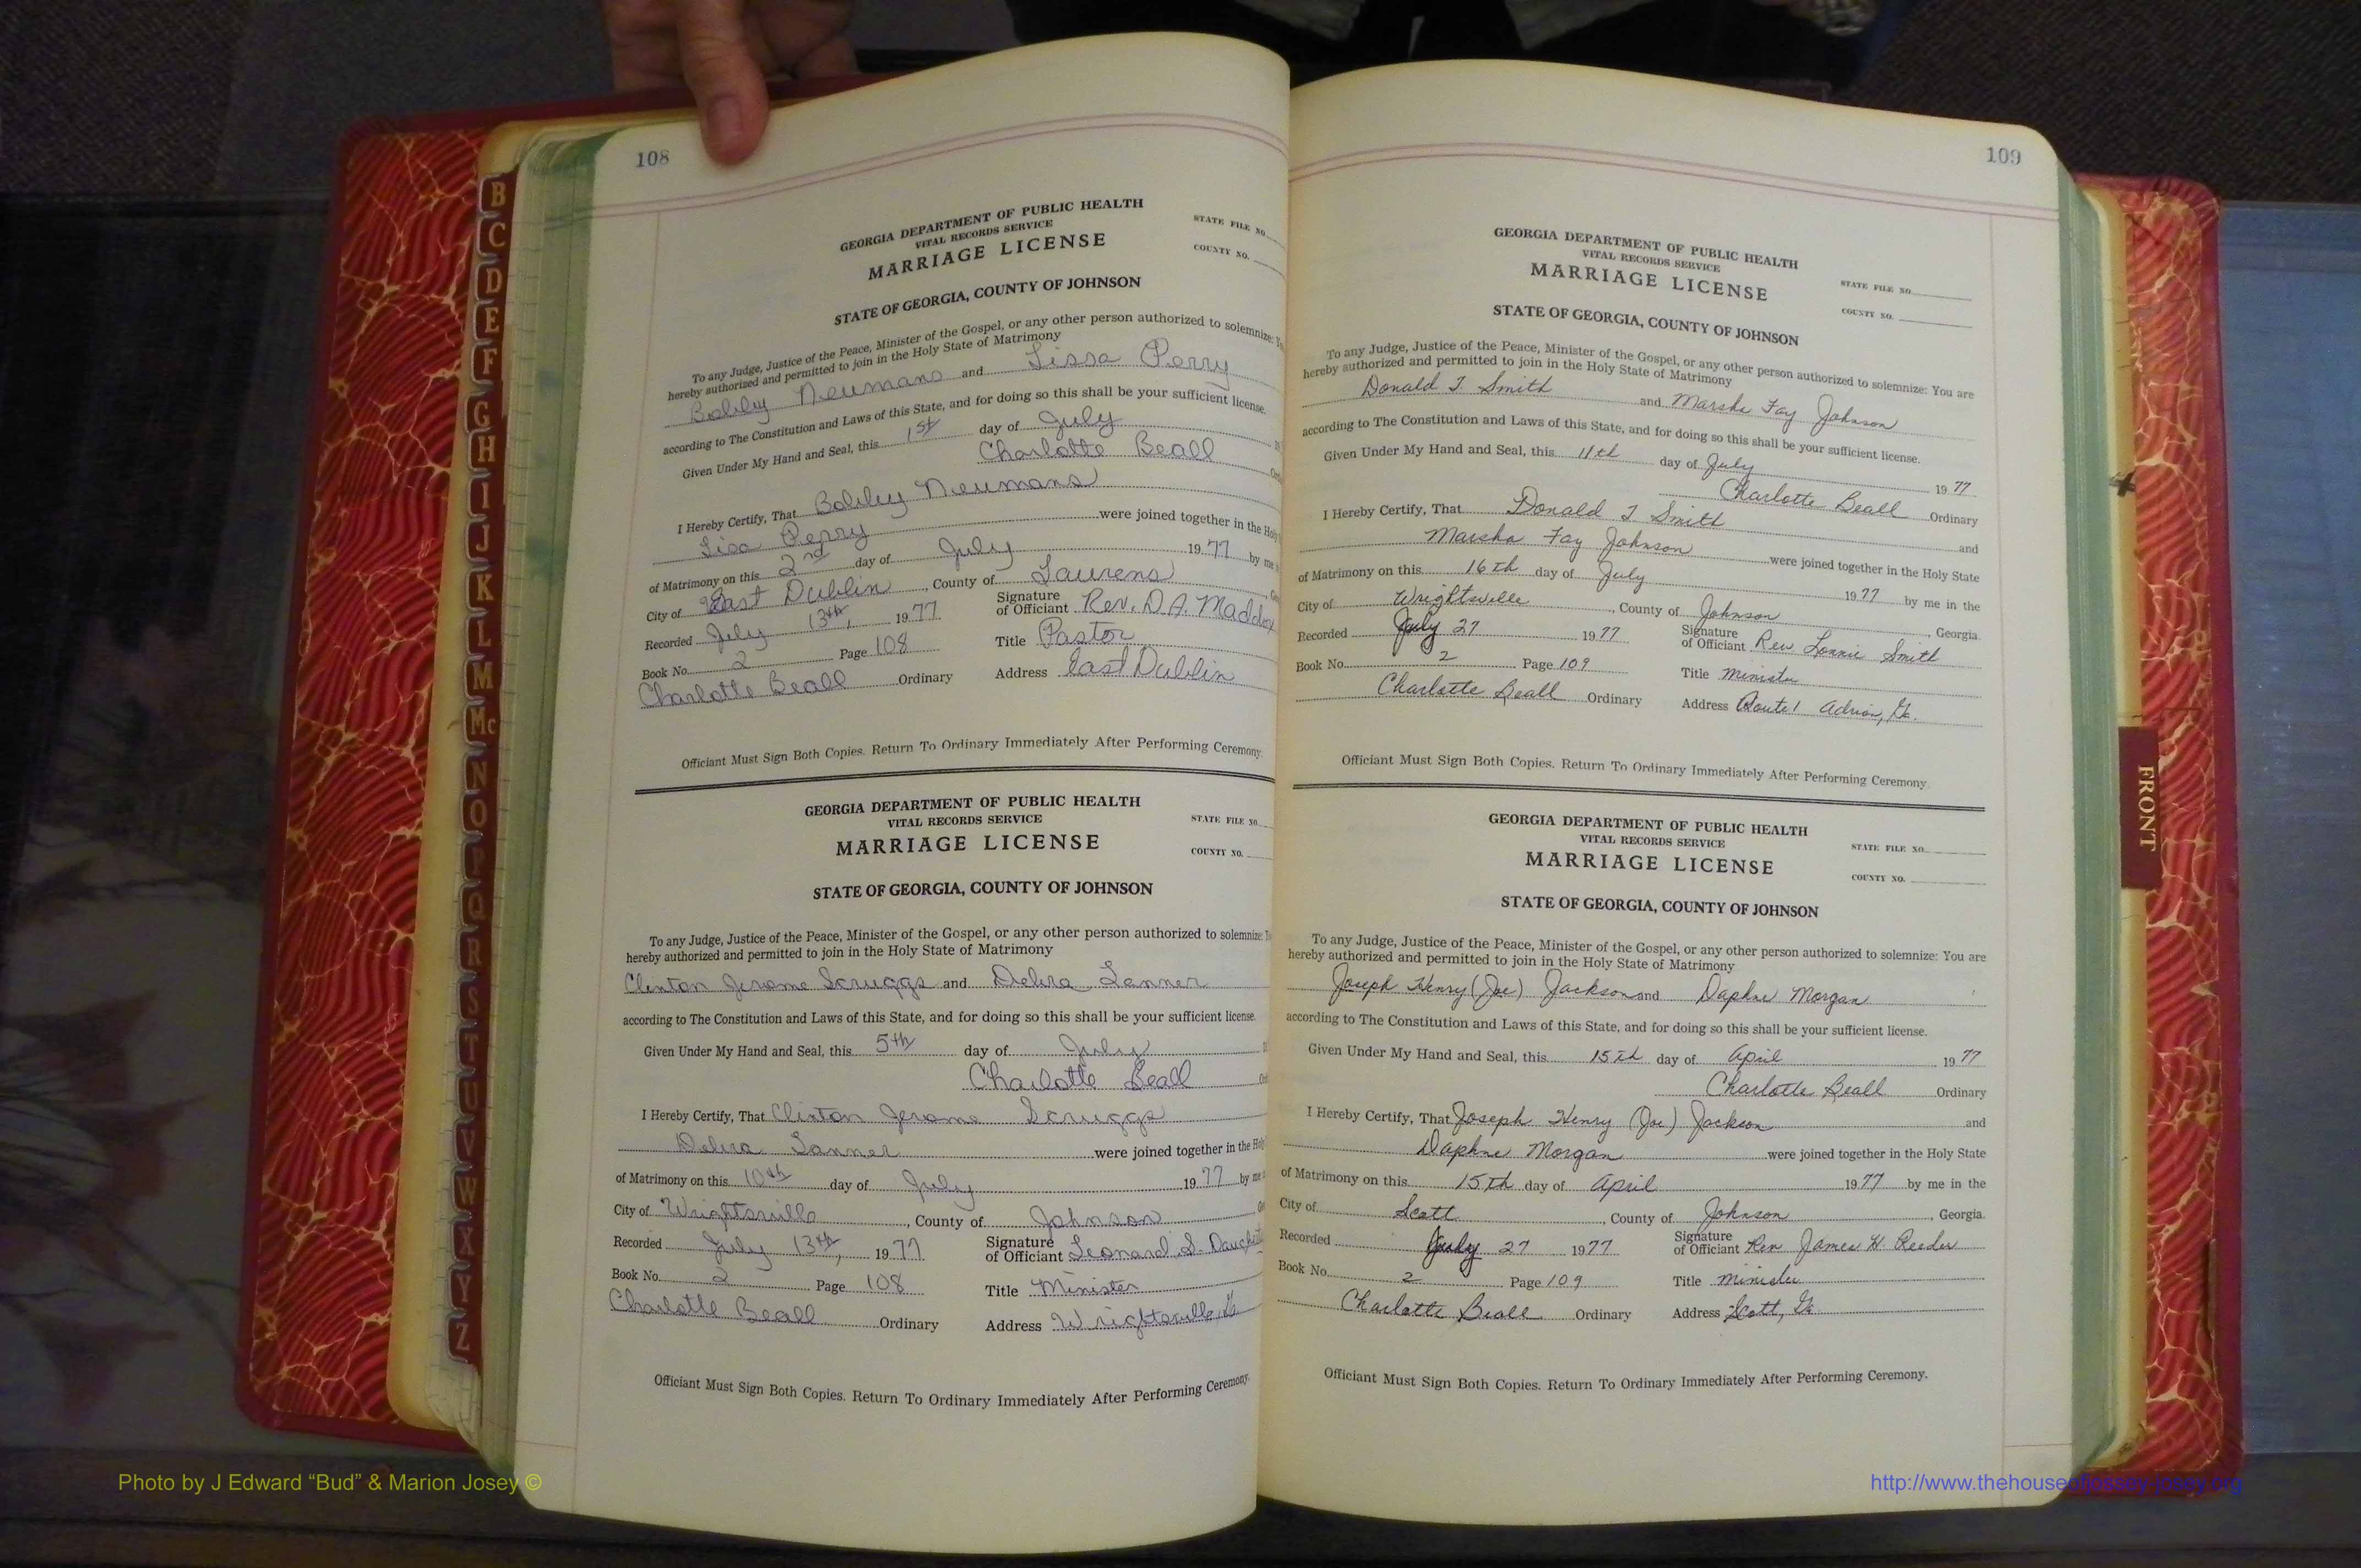 108
GEORGIA DEPARTMENT OF PUBLIC HEALTH
VITAL RECORDS SERVICE
MARRIAGE LICENSE
STATE FILE NO.
COUNTY NO.
STATE OF GEORGIA, COUNTY OF JOHNSON
To any Judge, Justice of the Peace, Minister of the Gospel, or any other person authorized to solemnize:
hereby authorized and permitted to join in the Holy State of Matrimony
Bobby Neumans and Lissa Perry
according to The Constitution and Laws of this State, and for doing so this shall be your sufficient license.
Given Under My Hand and Seal, this 1st day of July
Charlotte Beall
I Hereby Certify, That Bobby Neumans
Lisa Perry were joined together in the Holy
of Matrimony on this 2nd day of July 1977 by me
City of East Dublin, County of Laurens
Recorded July 13th, 1977 Signature of Officiant Rev. D.A. Maddox
Book No. 2 Page 108 Title Pastor
Charlotte Beall Ordinary Address East Dublin
Officiant Must Sign Both Copies. Return To Ordinary Immediately After Performing Ceremony.
GEORGIA DEPARTMENT OF PUBLIC HEALTH
VITAL RECORDS SERVICE
MARRIAGE LICENSE
STATE FILE NO.
COUNTY NO.
STATE OF GEORGIA, COUNTY OF JOHNSON
To any Judge, Justice of the Peace, Minister of the Gospel, or any other person authorized to solemnize:
hereby authorized and permitted to join in the Holy State of Matrimony
Clinton Jerome Scruggs and Debra Lanner
according to The Constitution and Laws of this State, and for doing so this shall be your sufficient license.
Given Under My Hand and Seal, this 5th day of July
Charlotte Beall
I Hereby Certify, That Clinton Jerome Scruggs
Debra Tanner were joined together in the Holy
of Matrimony on this 10th day of July 1977 by me
City of Wrightsville, County of Johnson
Recorded July 13th, 1977 Signature of Officiant Leonard S.
Book No. 2 Page 108 Title Minister
Charlotte Beall Ordinary Address Wrightsville, Ga
Officiant Must Sign Both Copies. Return To Ordinary Immediately After Performing Ceremony.
109
GEORGIA DEPARTMENT OF PUBLIC HEALTH
VITAL RECORDS SERVICE
MARRIAGE LICENSE
STATE FILE NO.
COUNTY NO.
STATE OF GEORGIA, COUNTY OF JOHNSON
To any Judge, Justice of the Peace, Minister of the Gospel, or any other person authorized to solemnize: You are
hereby authorized and permitted to join in the Holy State of Matrimony
Donald T. Smith and Marsha Fay Johnson
according to The Constitution and Laws of this State, and for doing so this shall be your sufficient license.
Given Under My Hand and Seal, this 11th day of July 1977
Charlotte Beall Ordinary
I Hereby Certify, That Donald T Smith and
Marsha Fay Johnson were joined together in the Holy State
of Matrimony on this 16th day of July 1977 by me in the
City of Wrightsville, County of Johnson, Georgia.
Recorded July 27 1977 Signature of Officiant Rev Lonnie Smith
Book No. 2 Page 109 Title Minister
Charlotte Beall Ordinary Address Route 1 Adrian, Ga.
Officiant Must Sign Both Copies. Return To Ordinary Immediately After Performing Ceremony.
GEORGIA DEPARTMENT OF PUBLIC HEALTH
VITAL RECORDS SERVICE
MARRIAGE LICENSE
STATE FILE NO.
COUNTY NO.
STATE OF GEORGIA, COUNTY OF JOHNSON
To any Judge, Justice of the Peace, Minister of the Gospel, or any other person authorized to solemnize: You are
hereby authorized and permitted to join in the Holy State of Matrimony
Joseph Henry (Joe) Jackson and Daphne Morgan
according to The Constitution and Laws of this State, and for doing so this shall be your sufficient license.
Given Under My Hand and Seal, this 15th day of April 1977
Charlotte Beall Ordinary
I Hereby Certify, That Joseph Henry (Joe) Jackson and
Daphne Morgan were joined together in the Holy State
of Matrimony on this 15th day of April 1977 by me in the
City of Scott, County of Johnson, Georgia.
Recorded July 27 1977 Signature of Officiant Rev James W. Reeder
Book No. 2 Page 109 Title Minister
Charlotte Beall Ordinary Address Scott, Ga.
Officiant Must Sign Both Copies. Return To Ordinary Immediately After Performing Ceremony.
B
C
D
E
F
G
H
I
J
K
L
M
Mc
N
O
P
Q
R
S
T
U
V
W
X
Y
Z
FRONT
Photo by J Edward “Bud” & Marion Josey ©
http://www.thehouseofjossey-josey.org